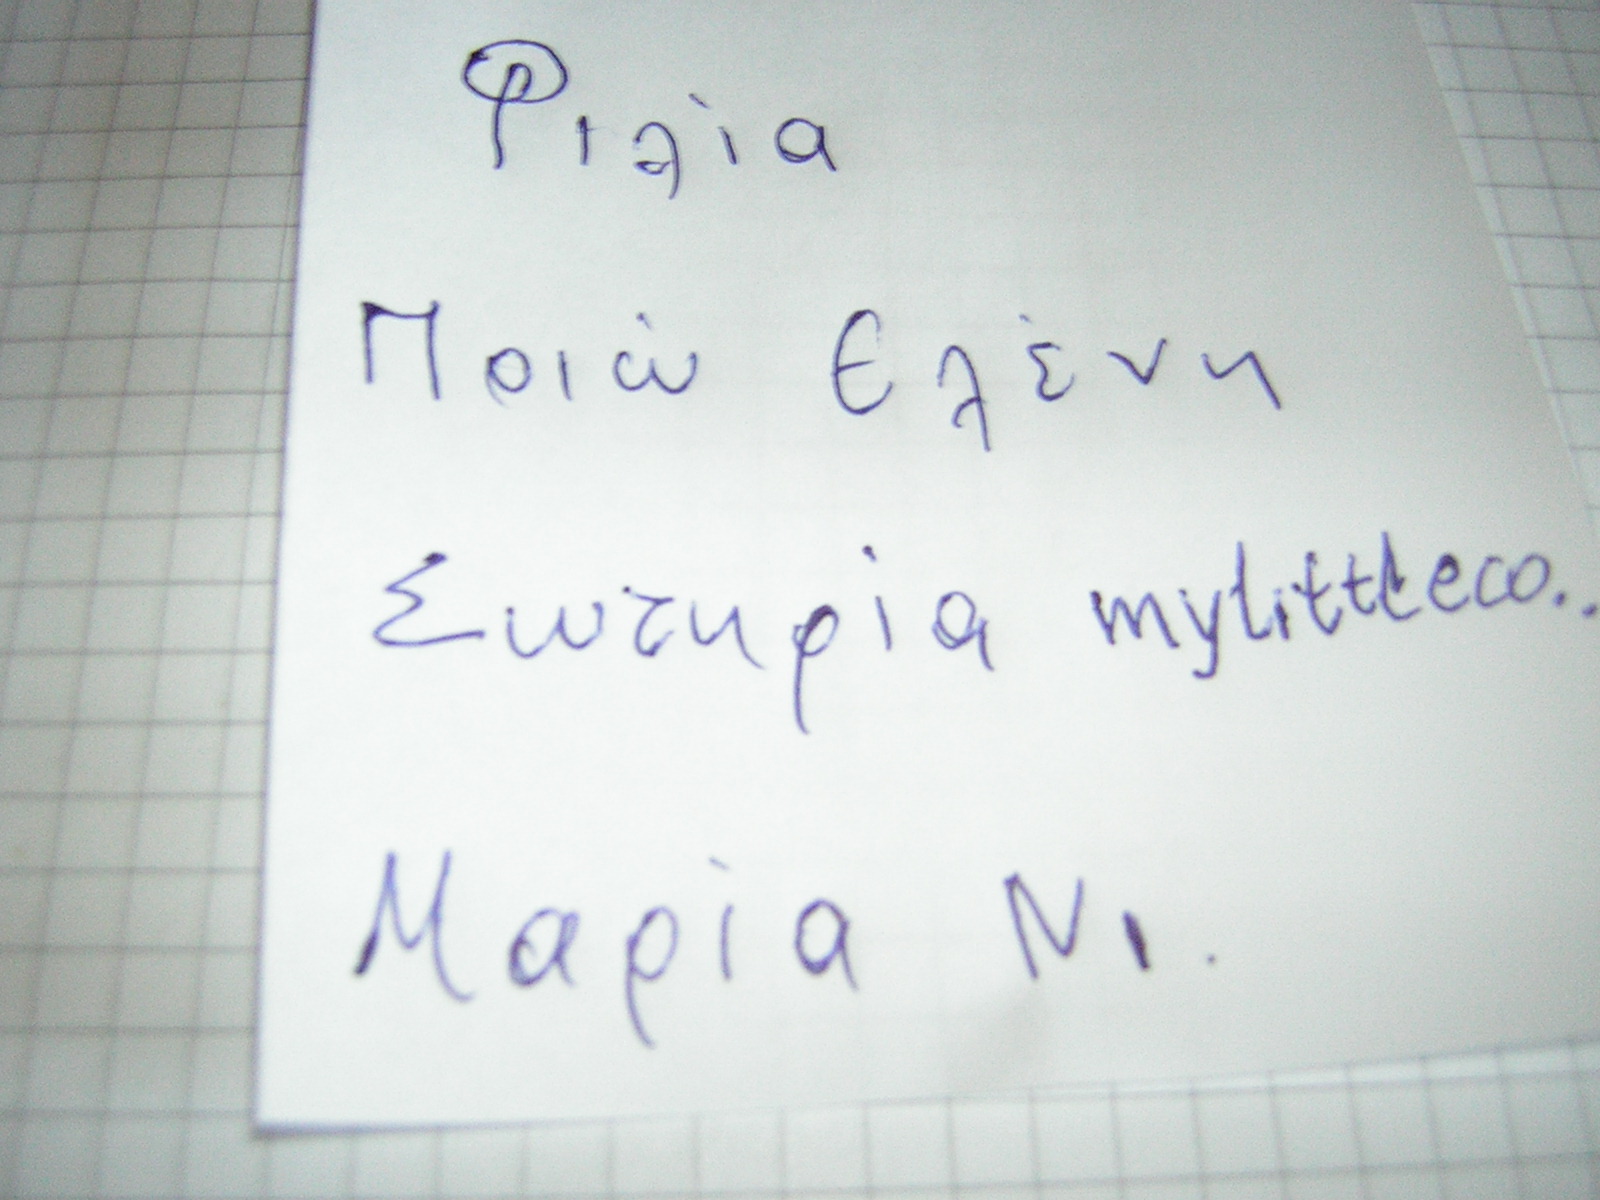 Φιλία
Ποιώ Ελένη
Σωτηρία mylittleco..
Μαρία Νι.